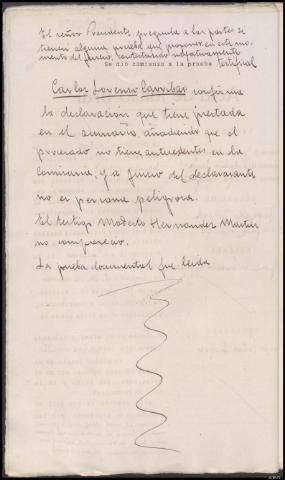 El señor Presidente, pregunta a las partes si
tienen alguna prueba que proponer en este mo-
mento del juicio, contestando negativamente
Se dió comienzo a la prueba testifical
Carlos Lorenzo Carribas confirma
la declaración que tiene prestada
en el sumario añadiendo que el
procesado no tiene antecedentes en la
Comisaria, y a juicio del declarante
no es persona peligrosa.
El testigo Modesto Hernandez Martin
no compareció.
La prueba documental fue leida.